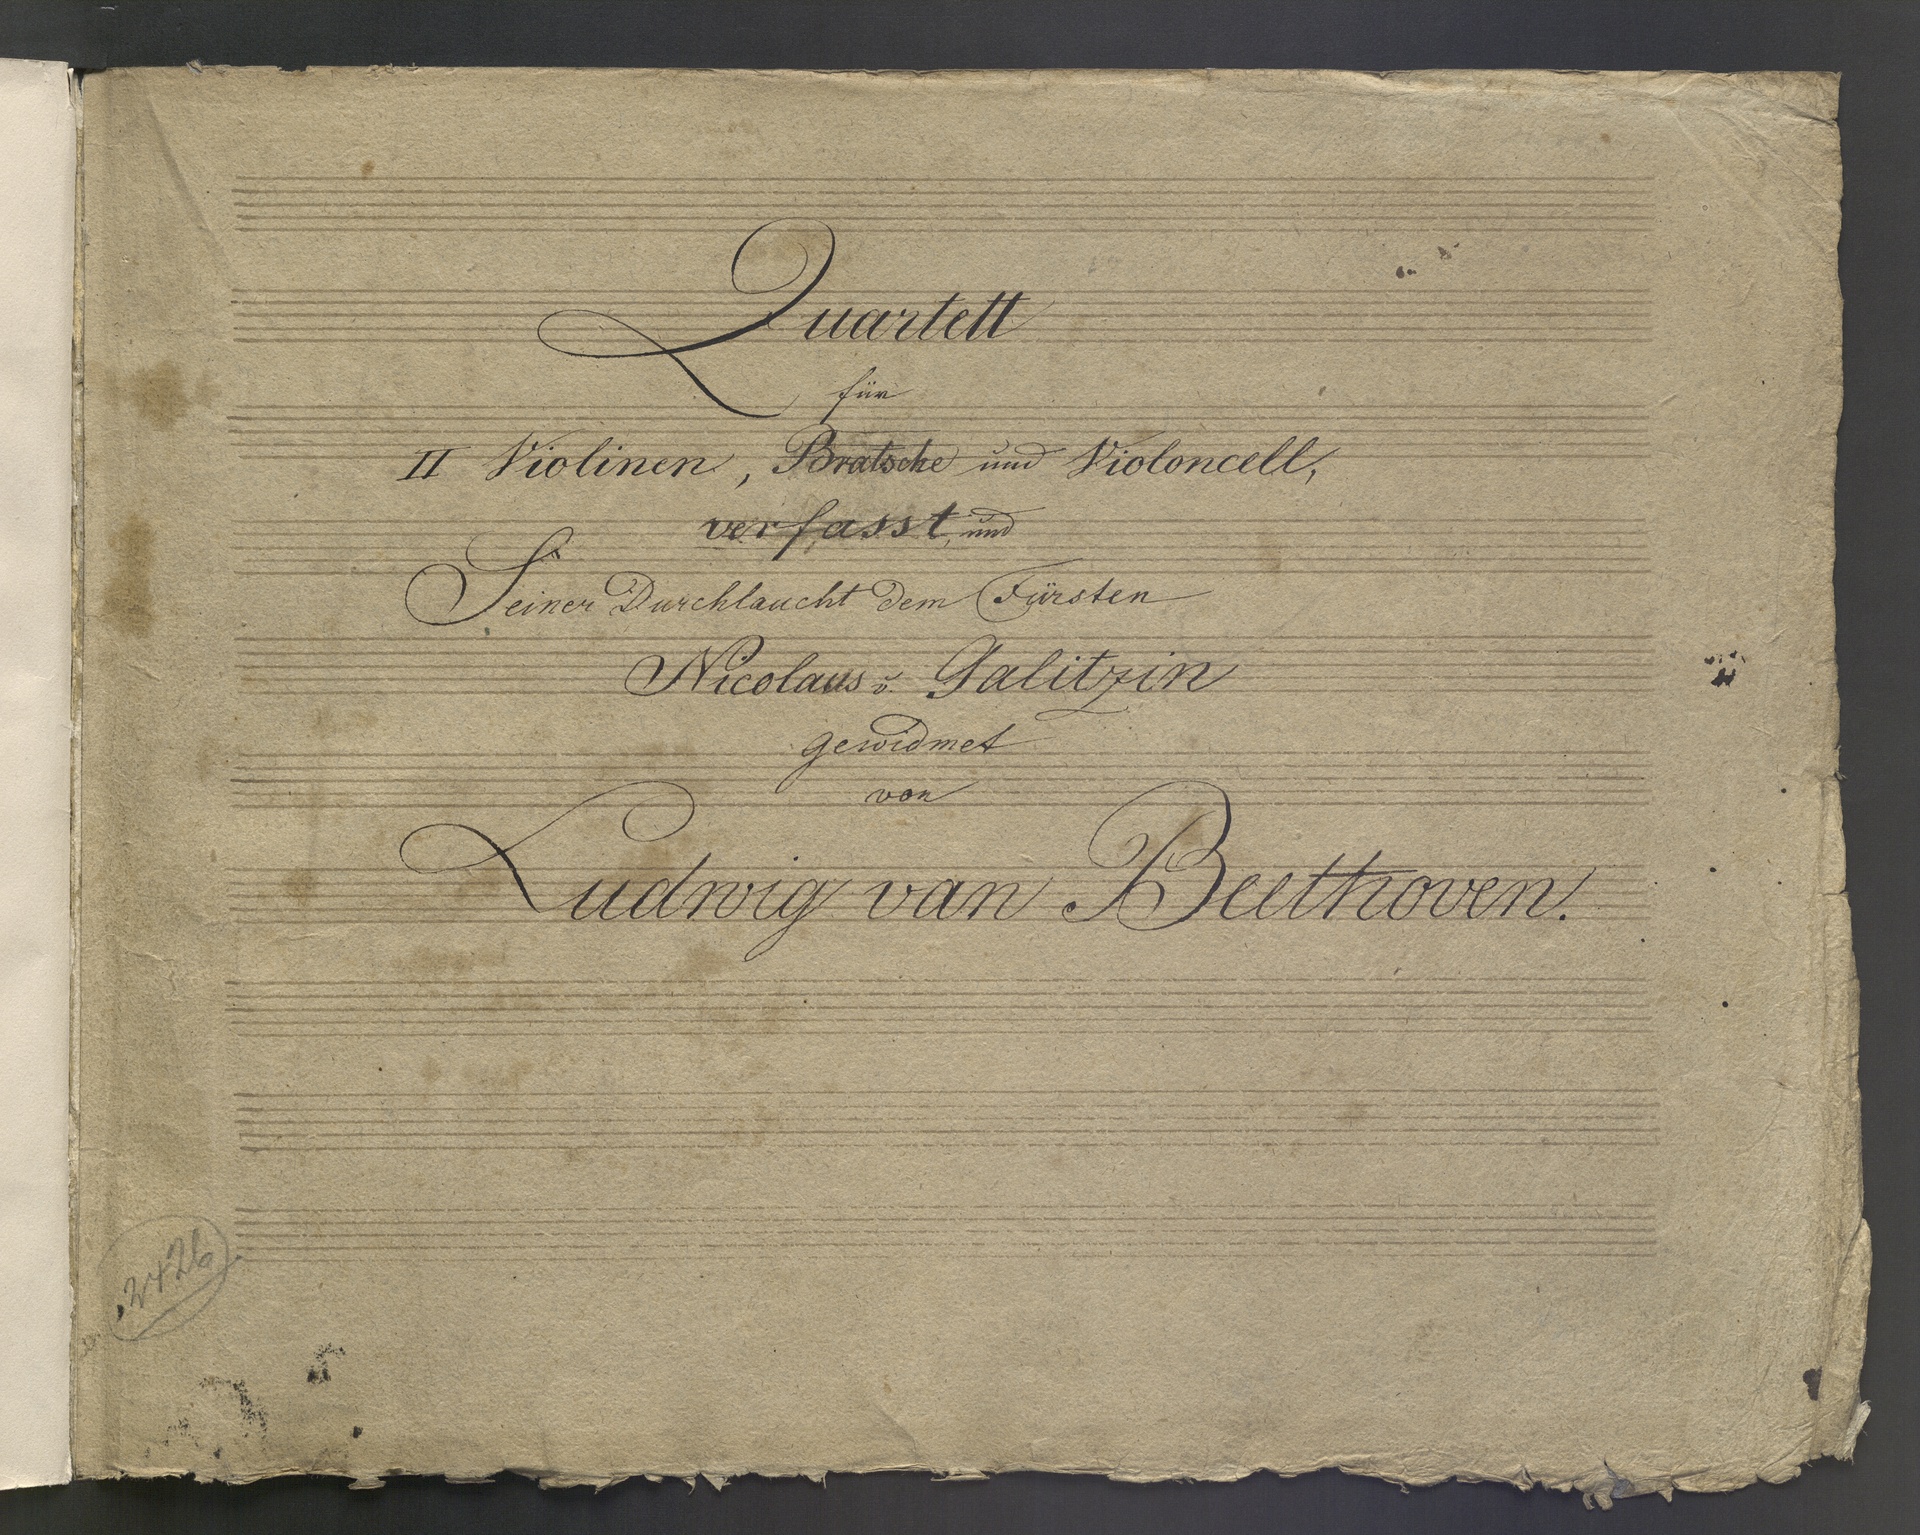 Quartett
für
II Violinen, Bratsche und Violoncell,
verfasst, und
Seiner Durchlaucht dem Fürsten
Nicolaus v. Galitzin
gewidmet
von
Ludwig van Beethoven.
2426